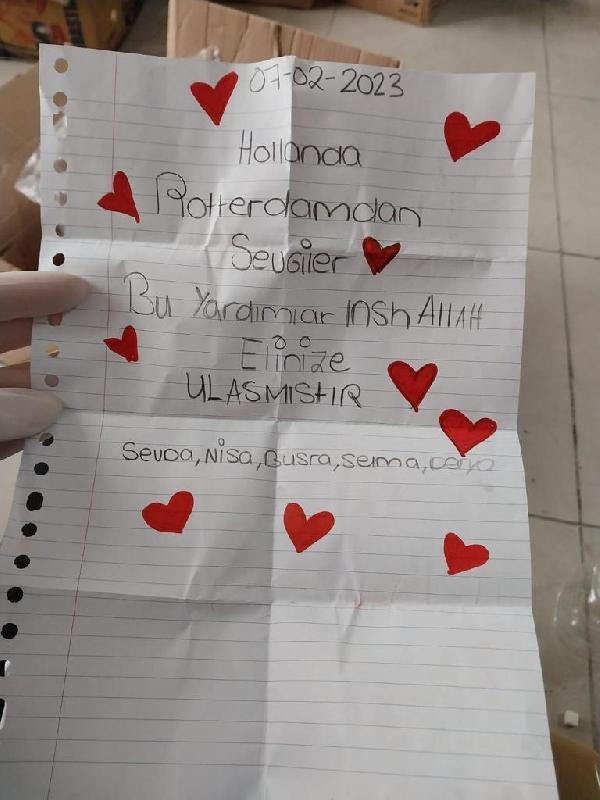 07-02-2023
Hollanda
Rotterdamdan
Sevgiler
Bu Yardımlar InshAllAH
Elinize
ULASMIStIR
Sevda, Nisa, Busra, Selma, Derya